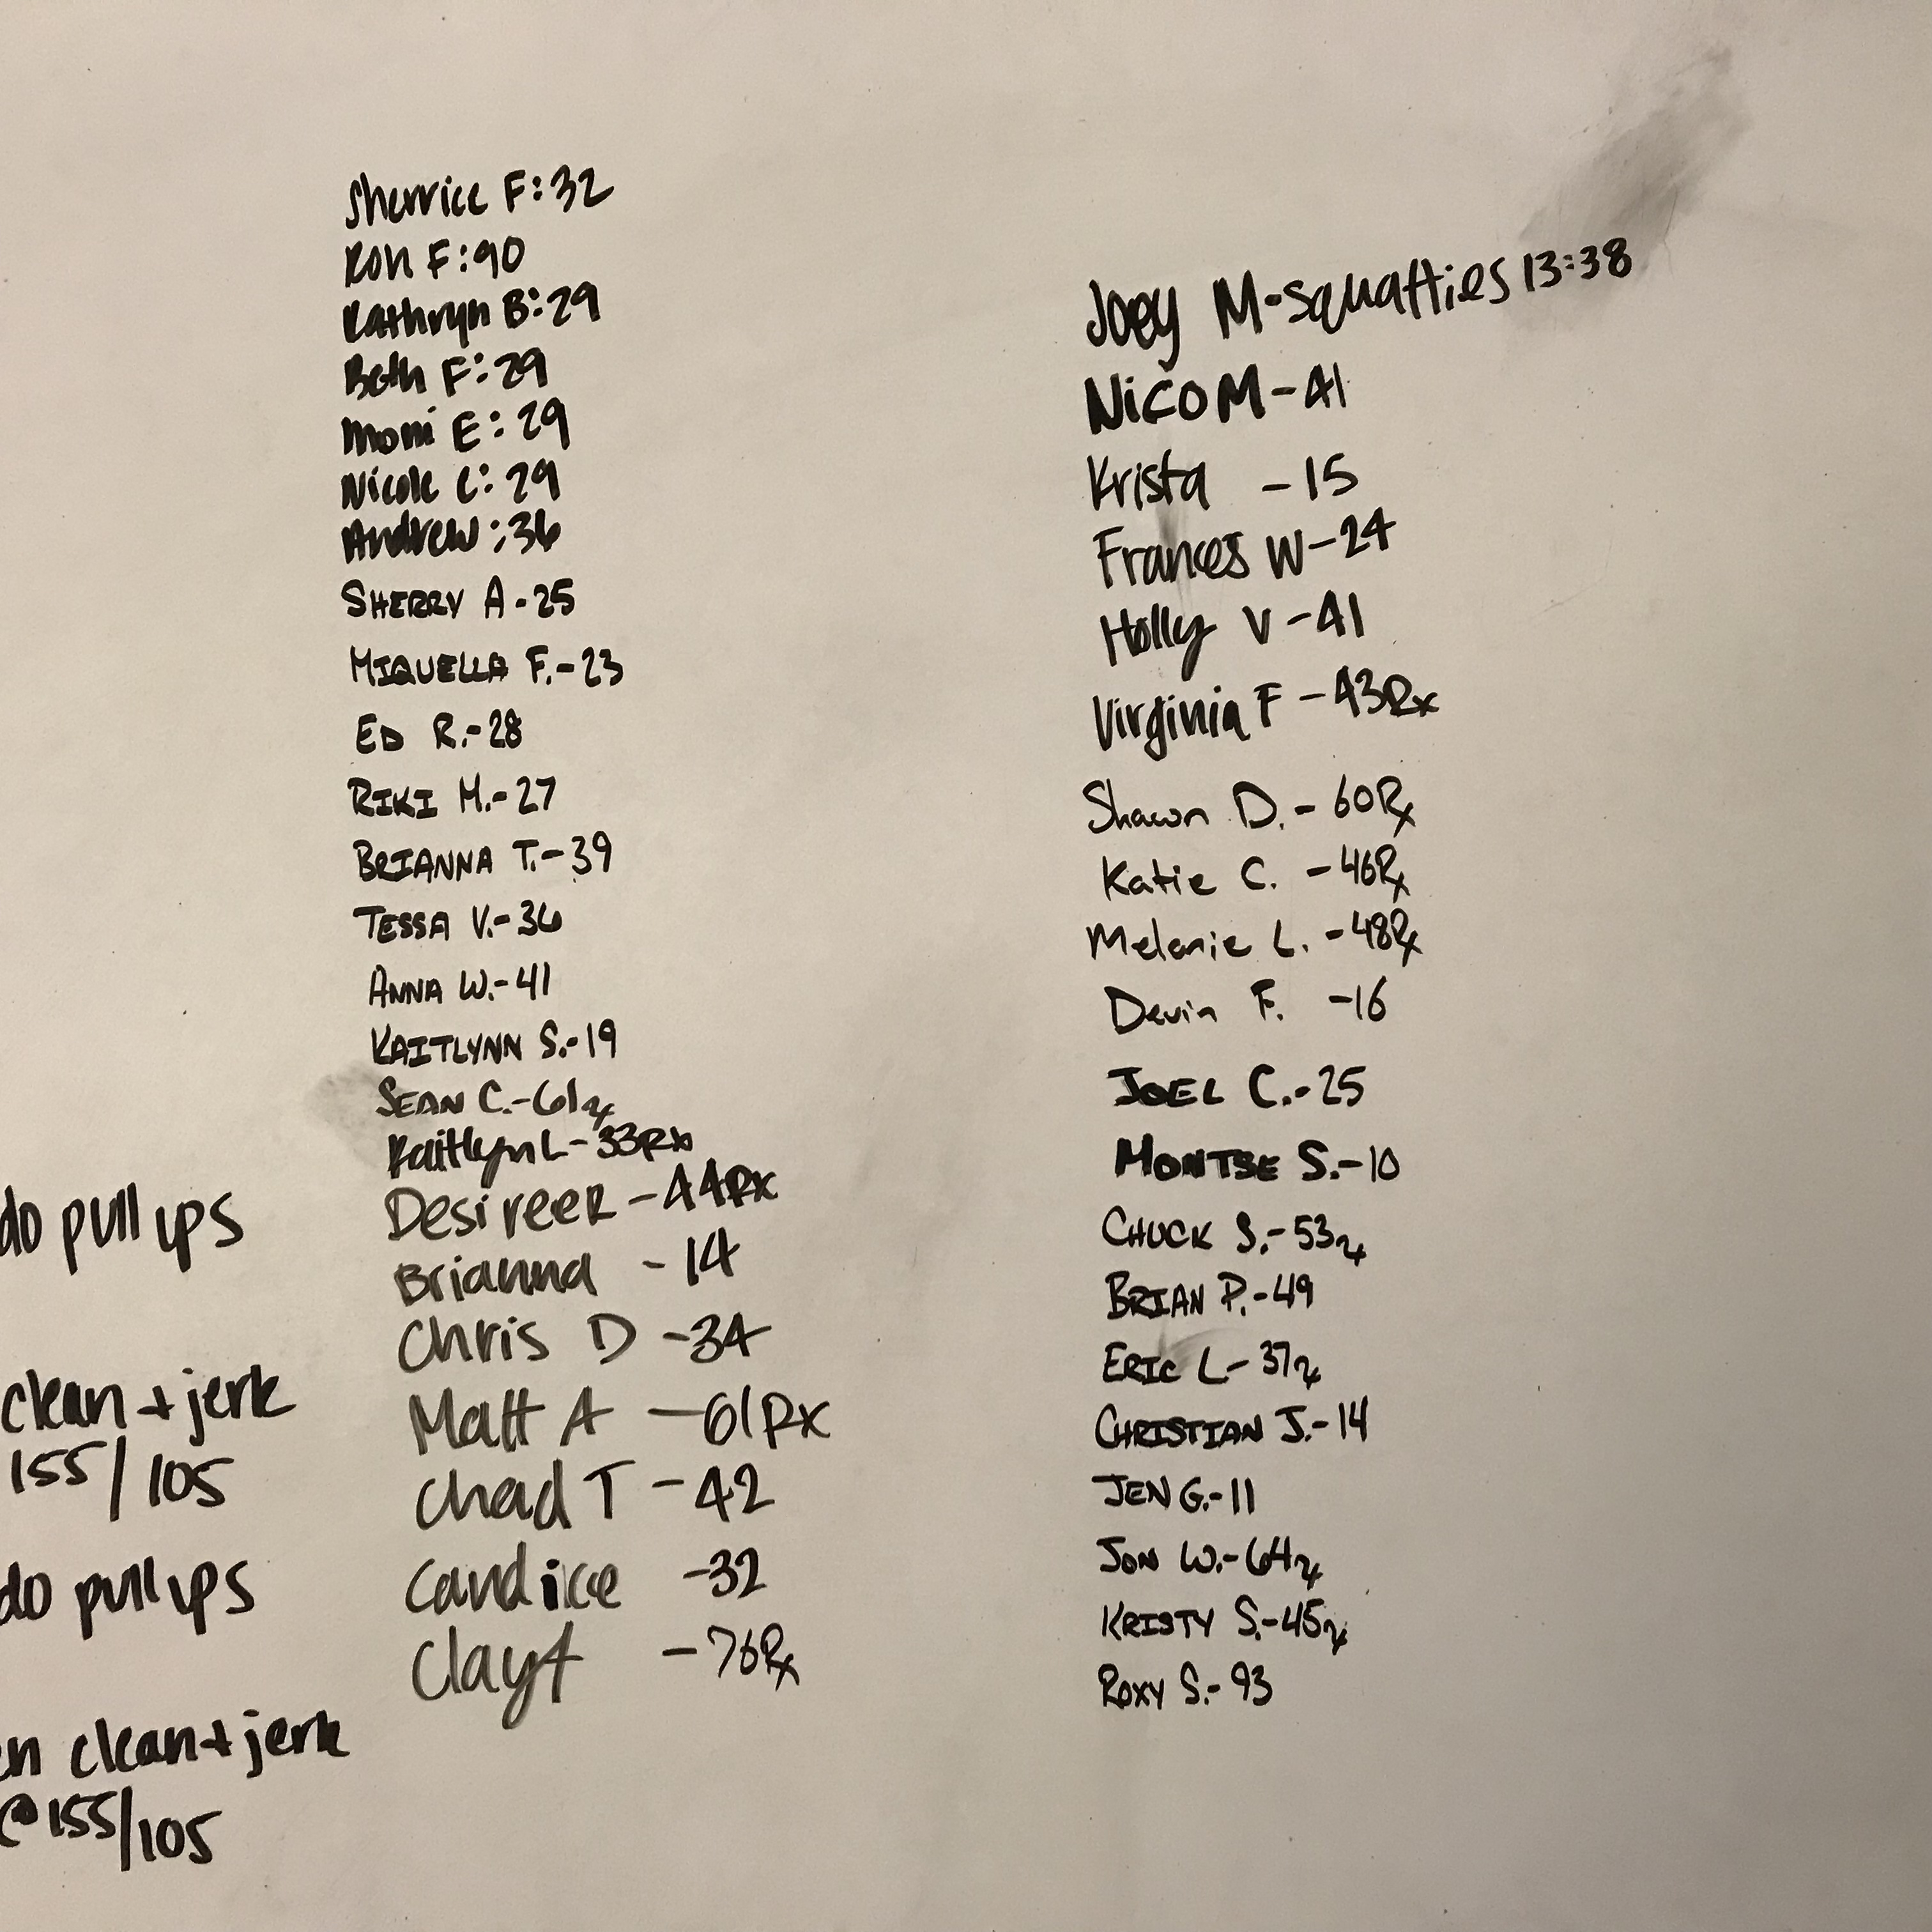 Sherrice F:32
Ron F:90
Kathryn B:29
Beth F:29
Moni E:29
Nicole C:29
Andrew:36
SHERRY A-25
MIQUELLA F.-23
ED R.-28
RIKI M.-27
BRIANNA T.-39
TESSA V.-36
ANNA W.-41
KAITLYNN S.-19
SEAN C.-61rx
Kaitlyn L-33Rx
Desiree R-44Rx
Brianna -14
Chris D -34
Matt A -61Rx
Chad T -42
Candice -32
Clayt -76Rx
do pull ups
clean + jerk
155/105
do pull ups
en clean + jerk
@155/105
Joey M-squatties 13:38
Nico M-41
Krista -15
Frances W-24
Holly V-41
Virginia F -43Rx
Shawn D.-60Rx
Katie C. -46Rx
Melanie L. -48Rx
Devin F. -16
JOEL C.-25
MONTSE S.-10
CHUCK S.-53rx
BRIAN P.-49
ERIC L-37rx
CHRISTIAN J.-14
JEN G.-11
JON W.-64rx
KRISTY S.-45rx
ROXY S.-93